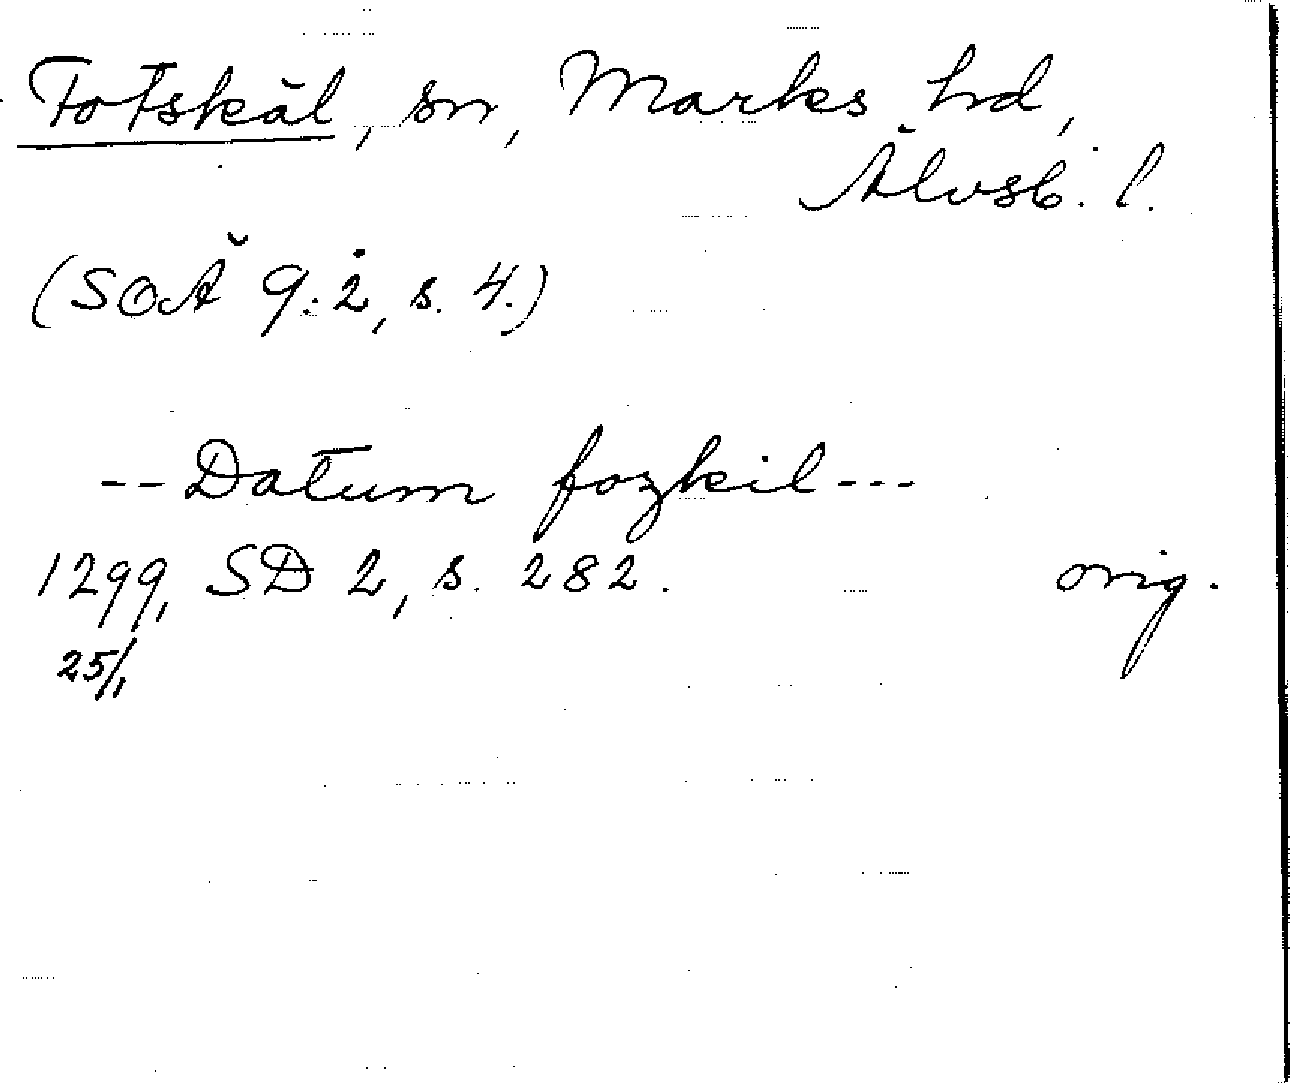 Fotskäl, sn, Marks hd,
Älvsb. l.
(SOÄ 9:2, s. 4.)
-- Datum fozkil ---
1299, SD 2, s. 282. orig.
25/1